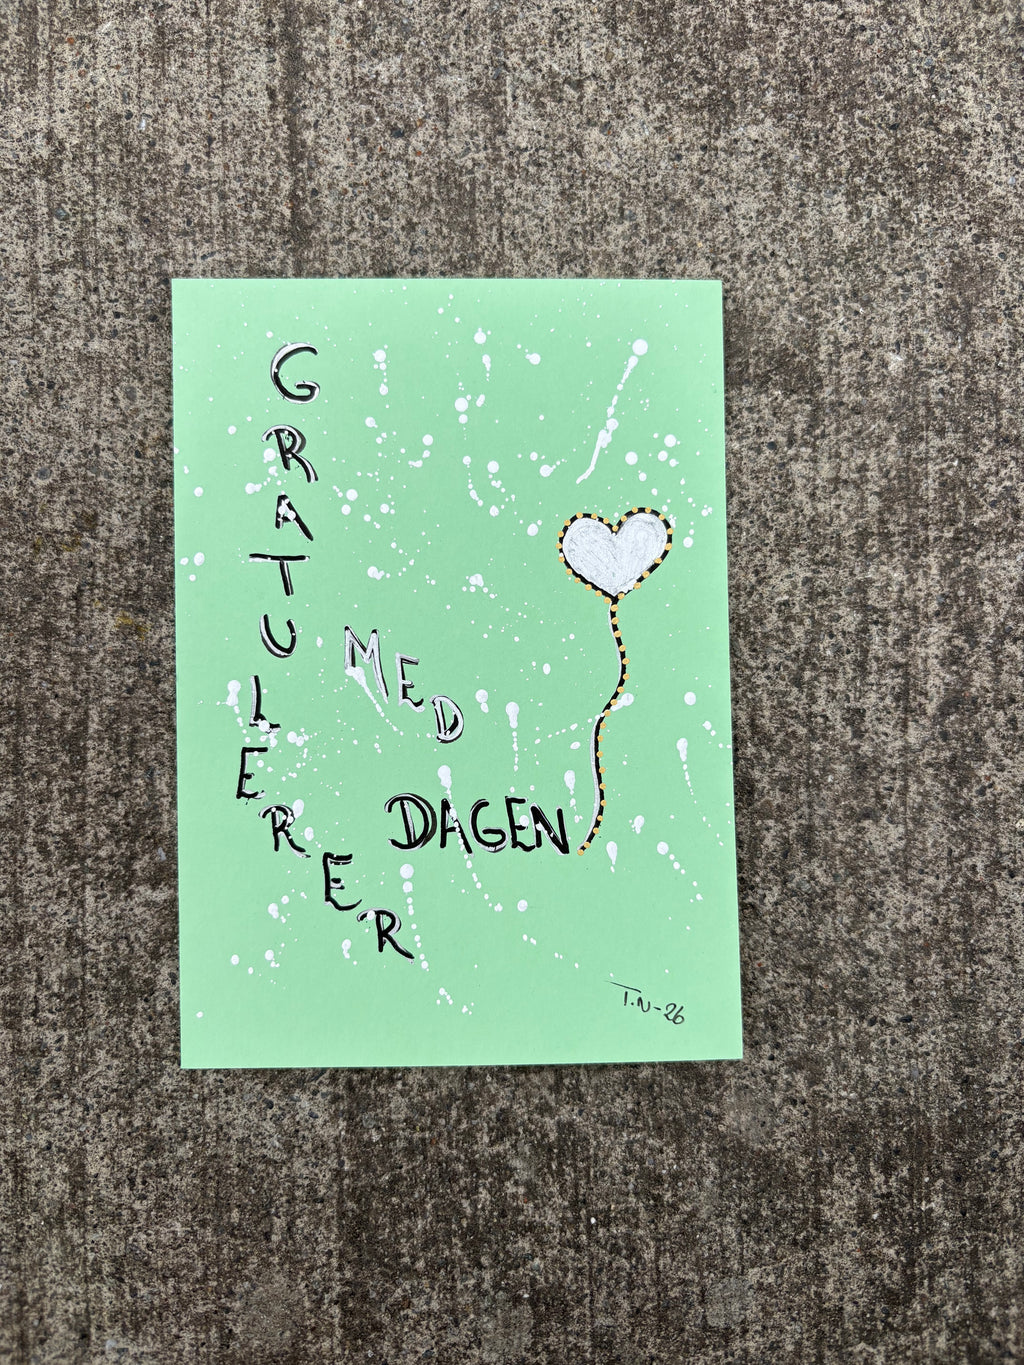 GRATULERER
MED
DAGEN
T.N-26